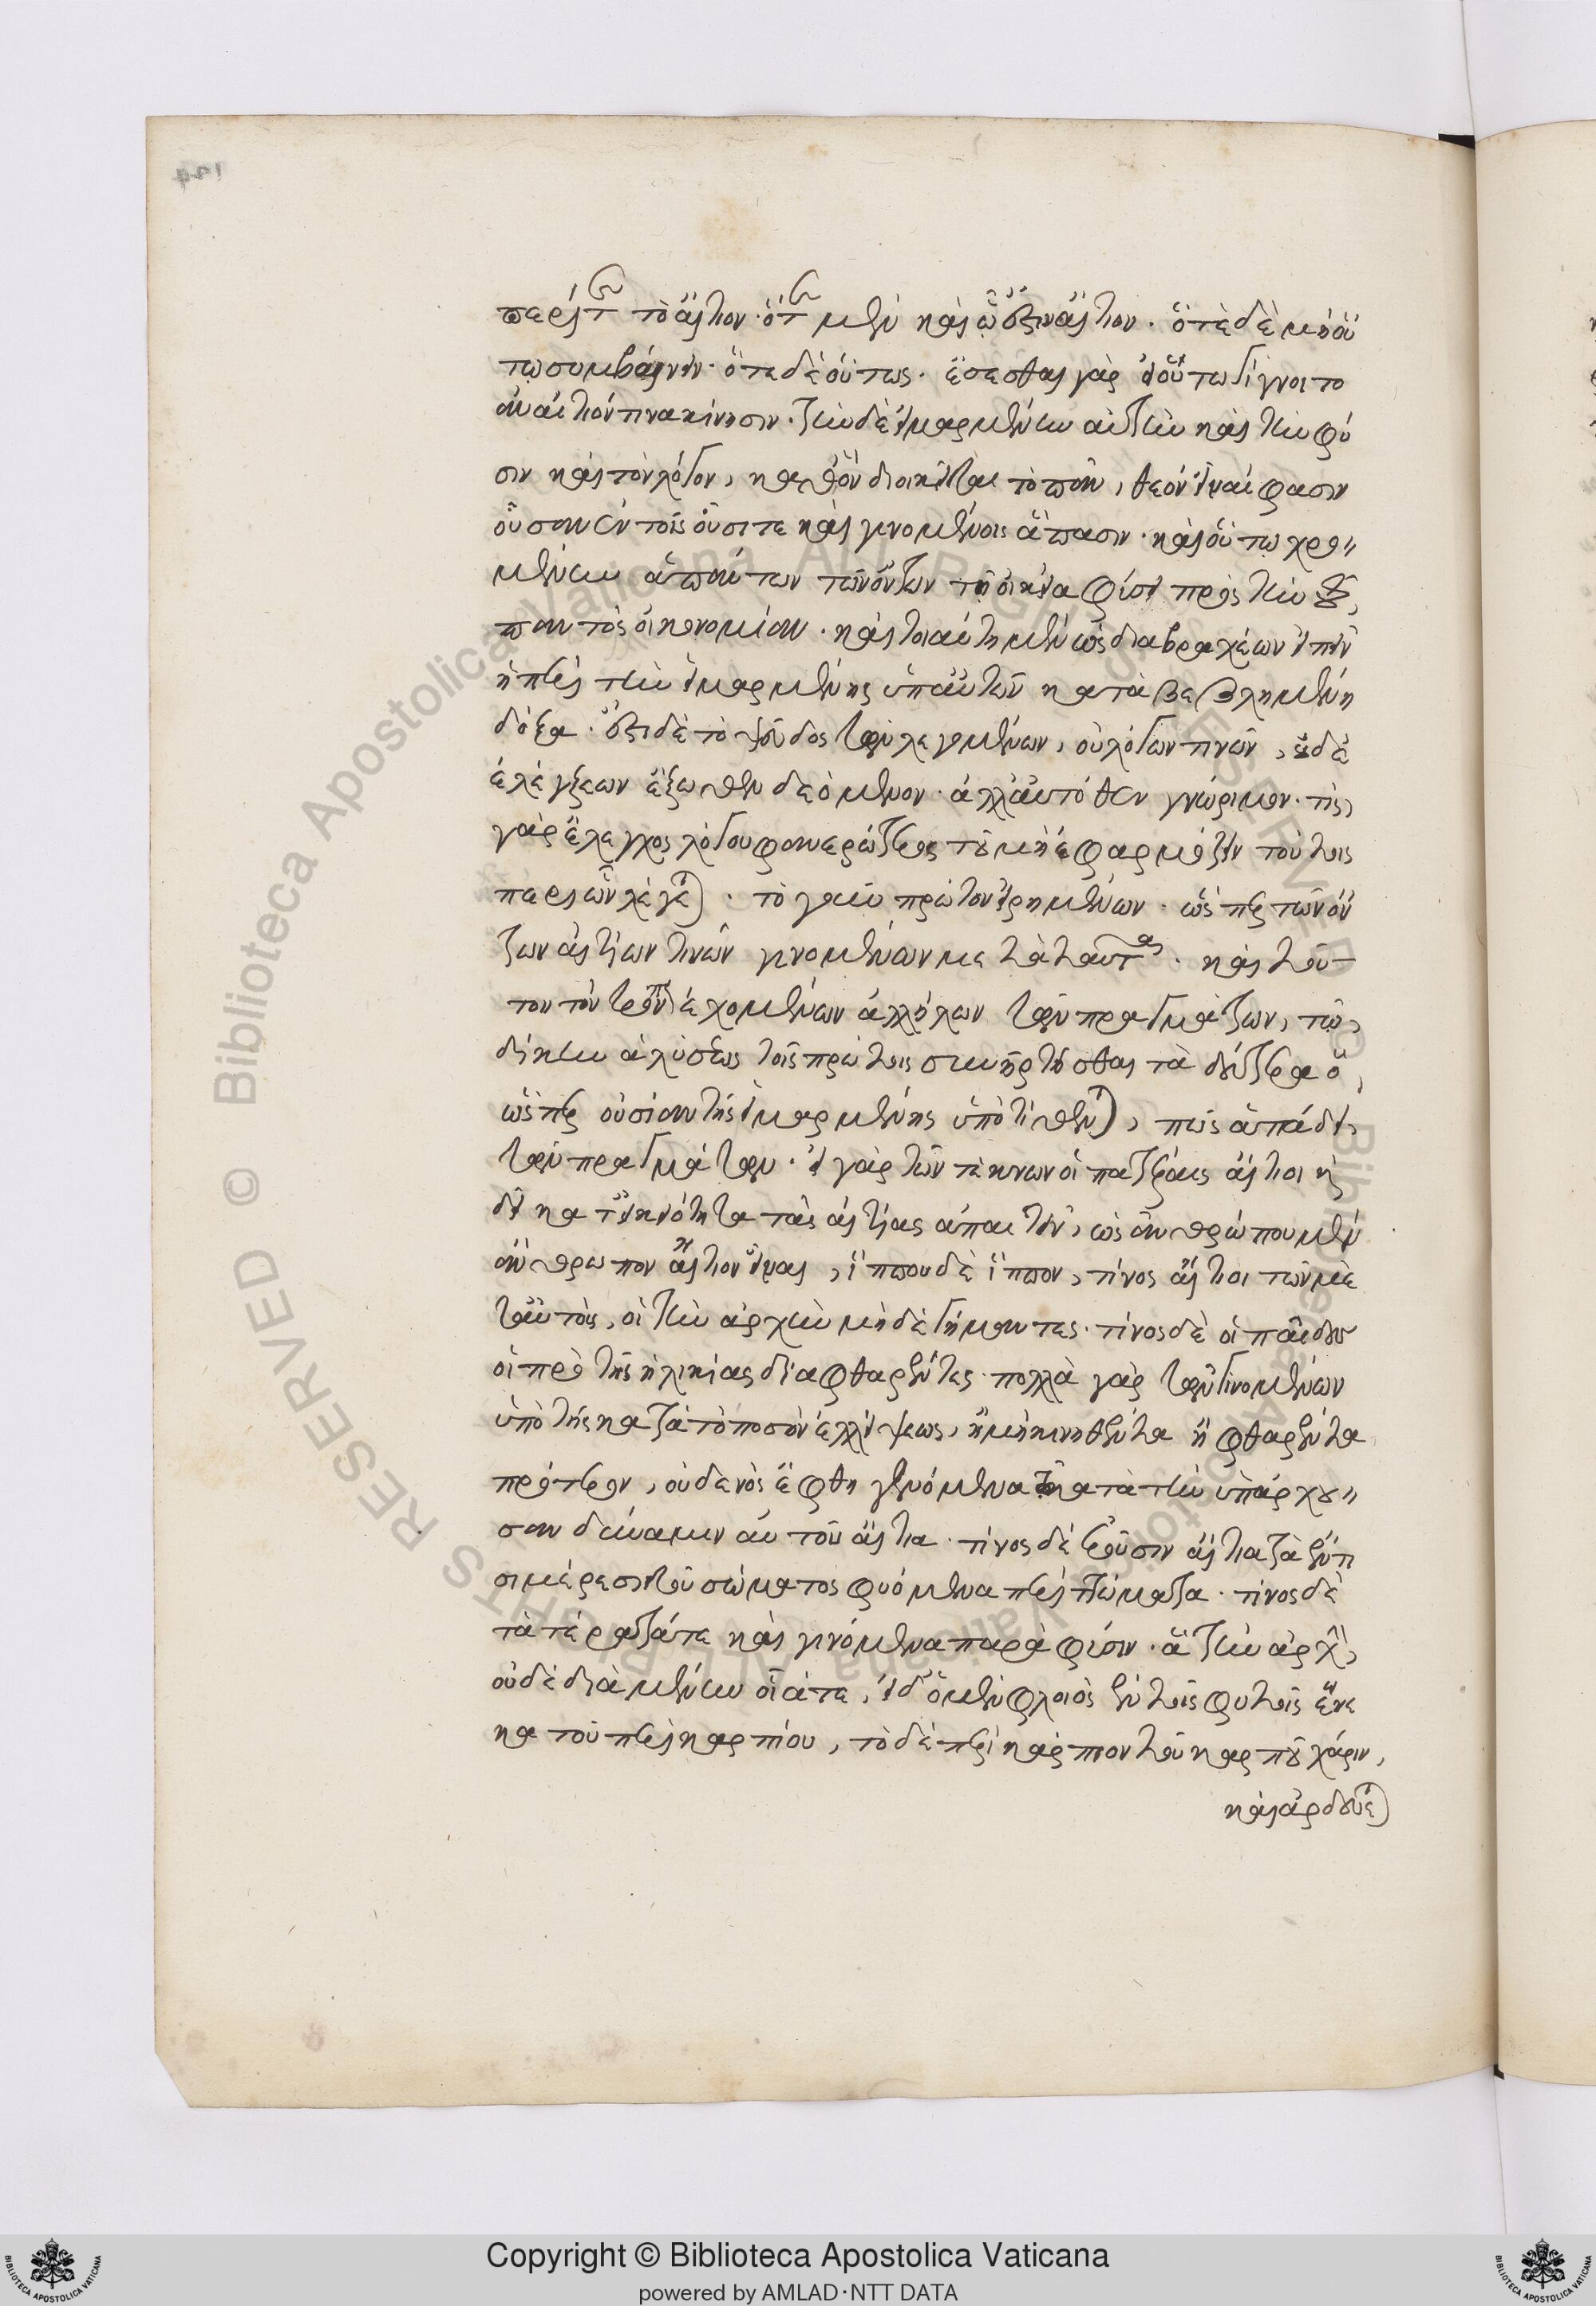 περί τε τὸ αἴτιον ὅτε μὲν καὶ ᾧ ἐστιν αἴτιον. ὁτὲ δὲ μὴ οὕ
τω συμβαίνειν. ὁτὲ δὲ οὕτως. ἔσεσθαι γὰρ εἰ οὕτω γίγνοιτο
ἀναίτιόν τινα κίνησιν. τὴν δὲ εἱμαρμένην αὐτὴν καὶ τὴν φύ
σιν καὶ τὸν λόγον, καθ' ὃν διοικεῖται τὸ πᾶν, θεὸν εἶναί φασιν
οὖσαν ἐν τοῖς οὖσί τε καὶ γινομένοις ἅπασιν. καὶ οὕτω χρω〃
μένην ἁπάντων τῶν ὄντων τῇ οἰκεία φύσει πρὸς τὴν τοῦ
παντὸς οἰκονομίαν. καὶ τοιαύτη μὲν ὡς διὰ βραχέων εἰπεῖν
ἡ περὶ τῆς εἱμαρμένης ὑπ' αὐτῶν καταβεβλημένη
δόξα. ἔστι δὲ τὸ ψεῦδος τῶν λεγομένων, οὐ λόγων τινῶν, οὐδὲ
ἐλέγξεων ἔξωθεν δεόμενον. ἀλλ' αὐτόθεν γνώριμον. τίς
γὰρ ἔλεγχος λόγου φανερώτερος τοῦ μὴ ἐφαρμόζειν τούτοις
περὶ ὧν λέγεται. τὸ γοῦν πρῶτον εἰρημένων. ὥσπερ τῶν ὄν
των αἰτίων τινῶν γινομένων μετὰ ταῦτα. καὶ τοῦ-
τον τὸν τρόπον ἐχομένων ἀλλήλων τῶν πραγμάτων, τῷ
δίκην ἁλύσεως τοῖς πρώτοις συνηρτῆσθαι τὰ δεύτερα ὃ
ὥσπερ οὐσίαν τῆς εἱμαρμένης ὑποτίθενται, πῶς ἀπάδει
τῶν πραγμάτων. εἰ γὰρ τῶν τέκνων οἱ πατέρες αἴτιοι καὶ
δεῖ κατ' εἰκειότητα τὰς αἰτίας ἀπαιτεῖν, ὡς ἀνθρώπου μὲν
ἄνθρωπον αἴτιον εἶναι, ἵππου δὲ ἵππον, τίνος αἴτιοι τῶν με
τ' αὐτοὺς, οἱ τὴν ἀρχὴν μηδὲ γήμαντες. τίνος δὲ οἱ παῖδες
οἱ πρὸ τῆς ἡλικίας διαφθαρέντες. πολλὰ γὰρ τῶν γινομένων
ὑπὸ τῆς κατὰ τὸ ποσὸν ἐλλείψεως, ἢ μὴ κινηθέντα ἢ φθαρέντα
πρότερον, οὐδενὸς ἔφθη γενόμενα κατὰ τὴν ὑπάρχου〃
σαν δύναμιν ἐν αὐτοῖς αἴτια. τίνος δ' ἐροῦσιν αἴτια τὰ ἔν τι
σι μέρεσι τοῦ σώματος φυόμενα περιττώματα. τίνος δὲ
τὰ τέρατά τε καὶ γινόμενα παρὰ φύσιν. ἃ τὴν ἀρχὴν
οὐδὲ διαμένειν οἷά τε, εἰ δ' ὁ μὲν φλοιὸς ἐν τοῖς φυτοῖς ἕνε
κα τοῦ περικαρπίου, τὸ δὲ περικάρπιον τοῦ καρποῦ χάριν,
καὶ ἄρδεύεται